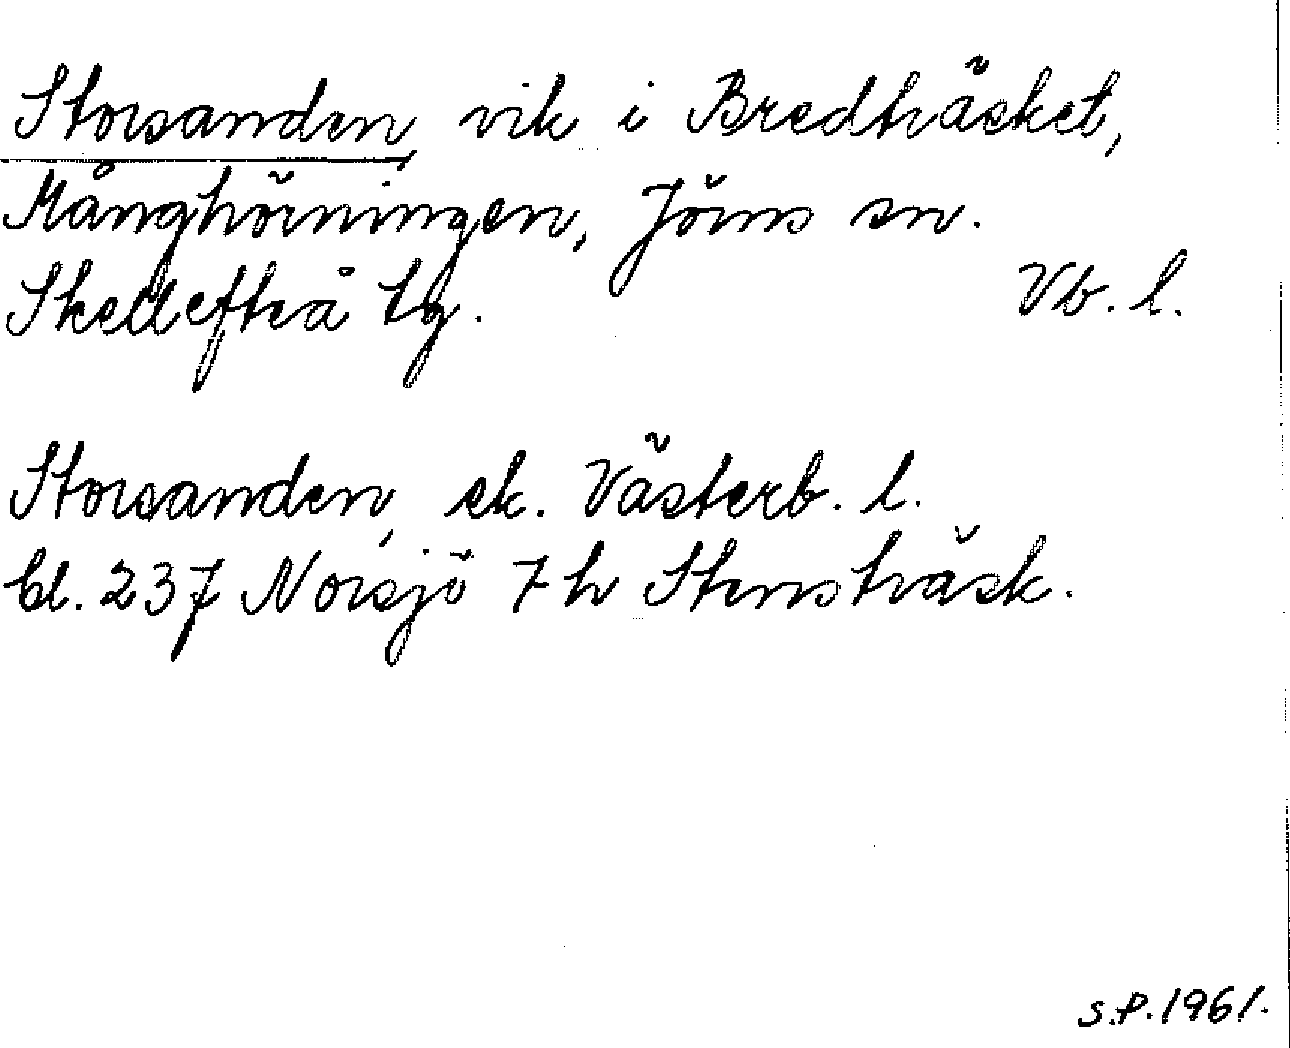 Storsanden, vik i Bredträsket,
Månghörningen, Jörns sn.
Skellefteå tg. Vb. l.
Storsanden, ek. Västerb. l.
bl. 237 Norsjö 7 h Stensträsk.
S.P. 1961.